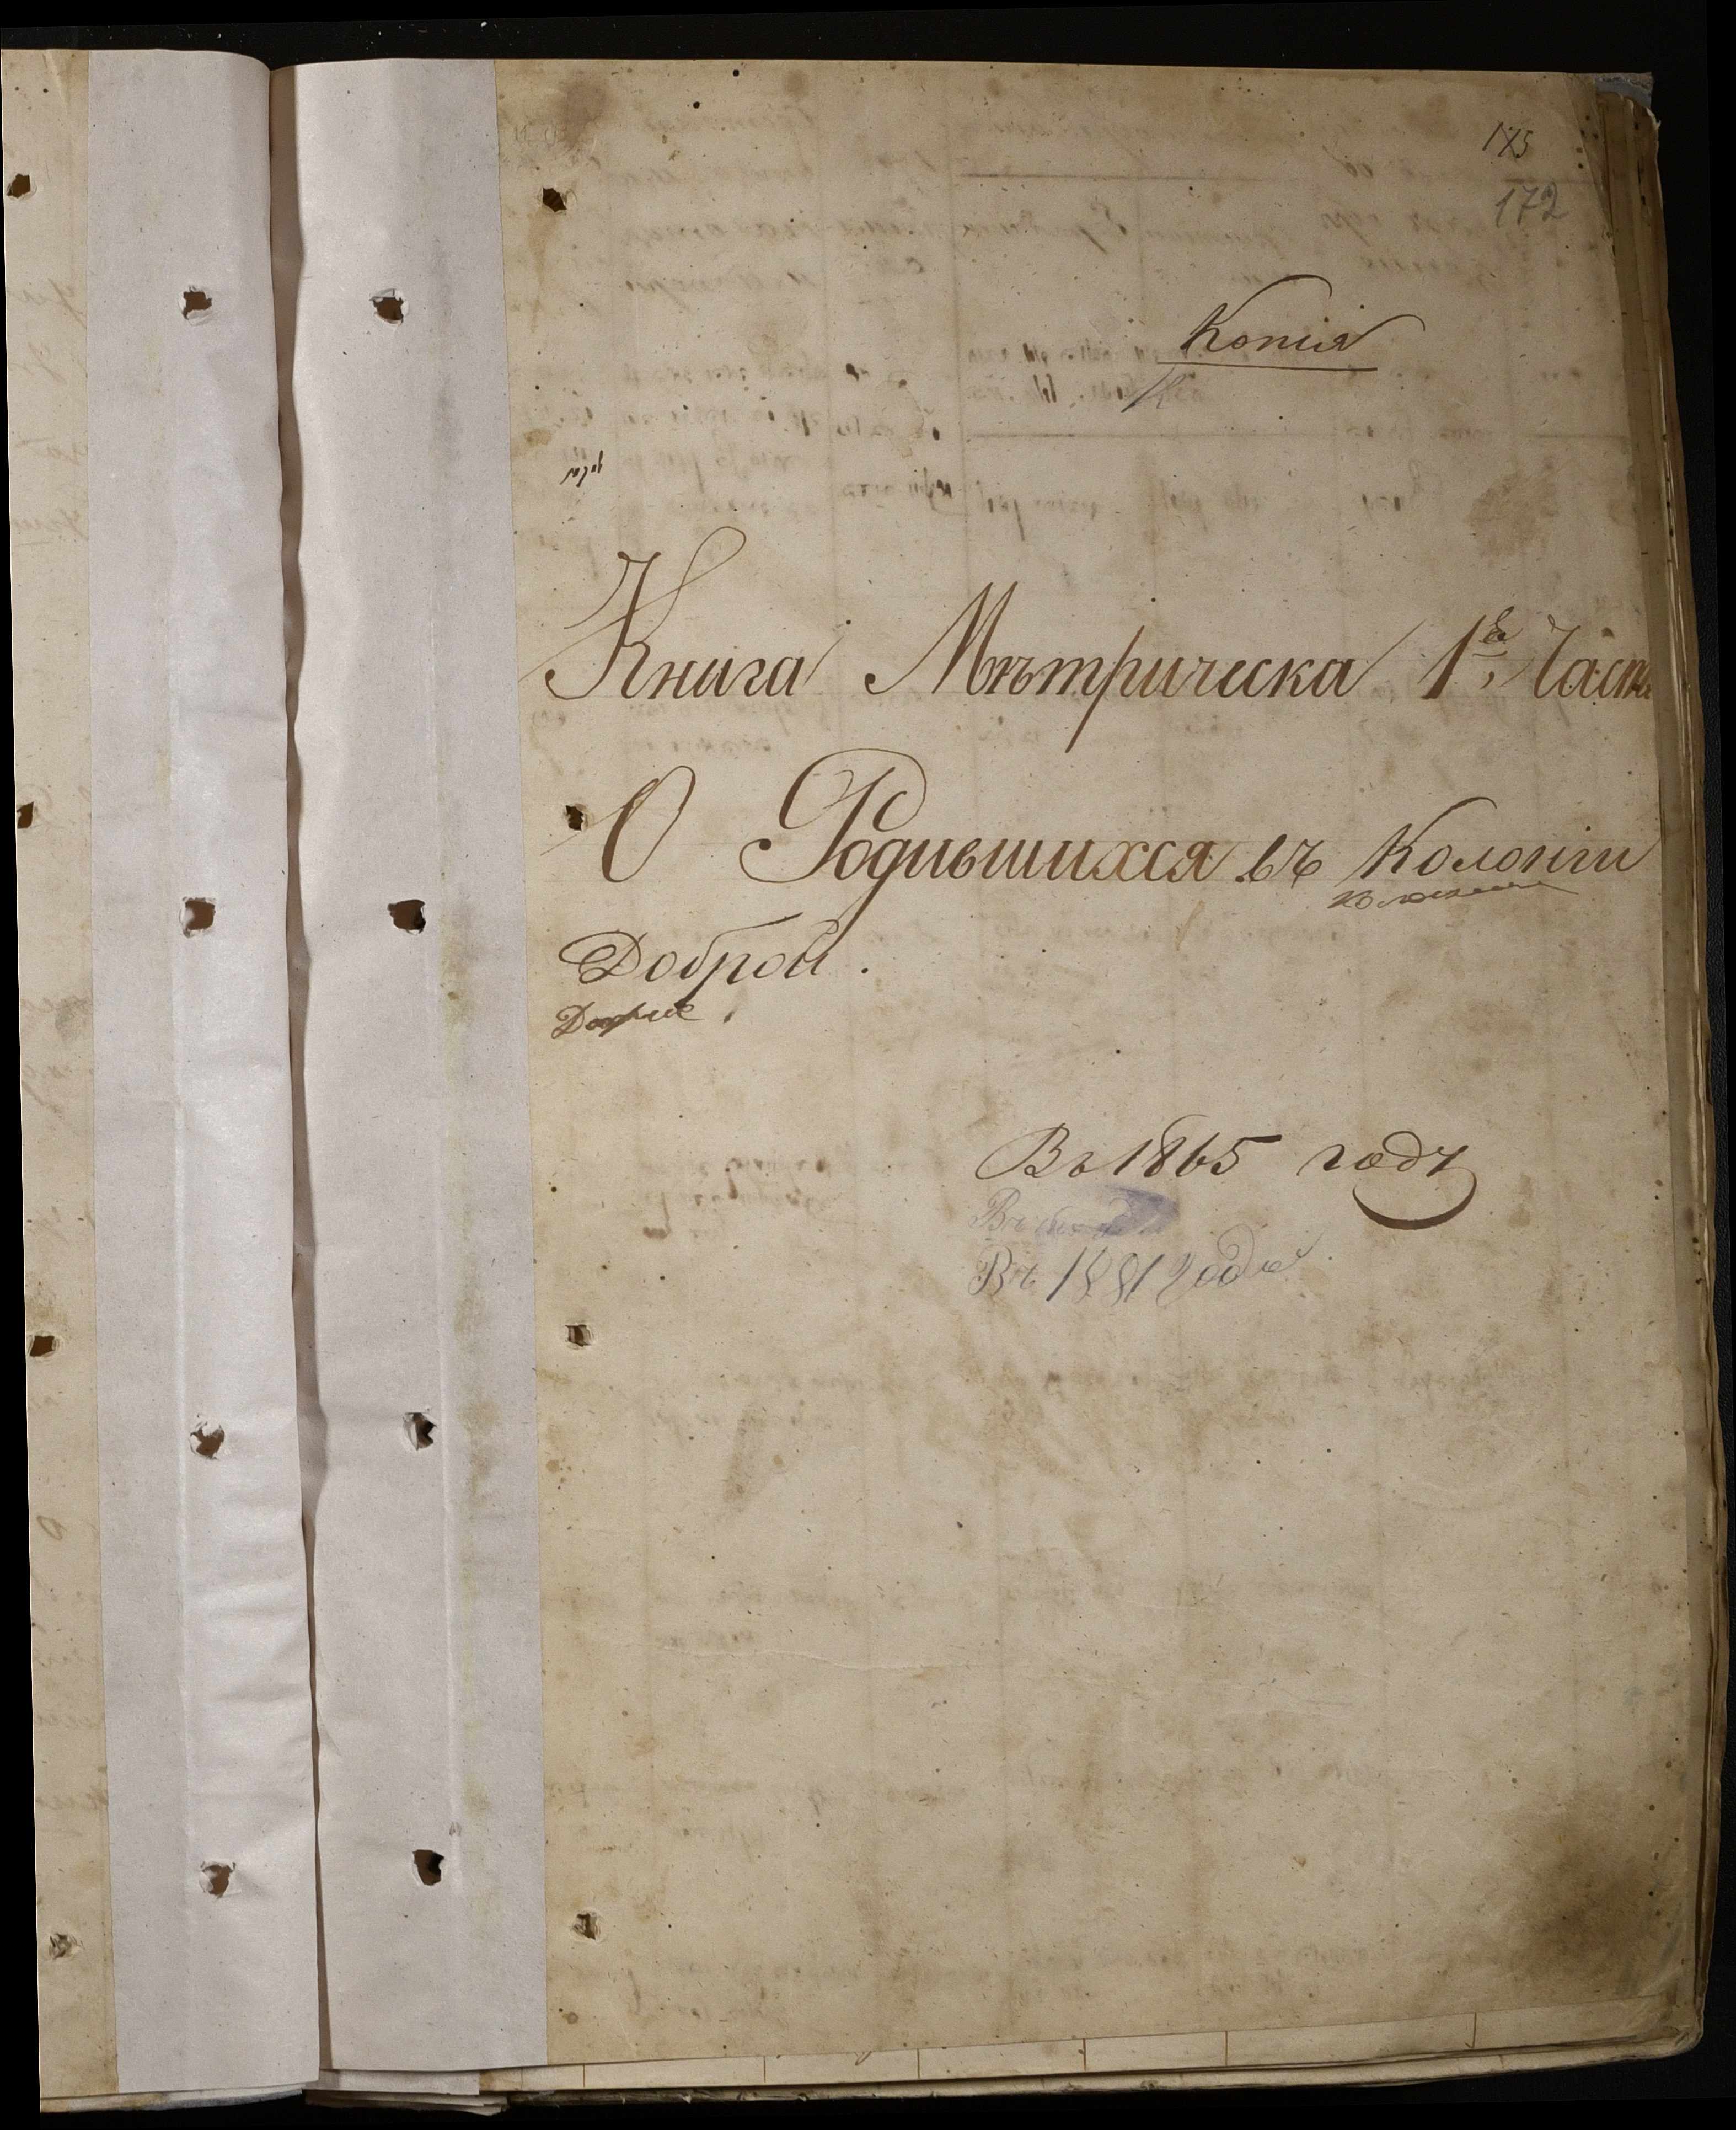 173
172
Копія
К
Книга Мѣтрическа 1ꙗ Часть
О Родившихся въ Колоніи
Доброй.
Въ 1865 годѣ
Въ
Въ 1881 году